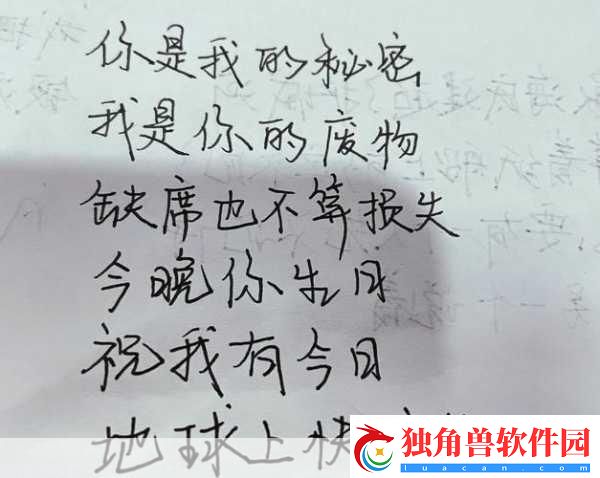 你是我的秘密
我是你的废物
缺席也不算损失
今晚你生日
祝我有今日
地球上快
独角兽软件园
luacan.com